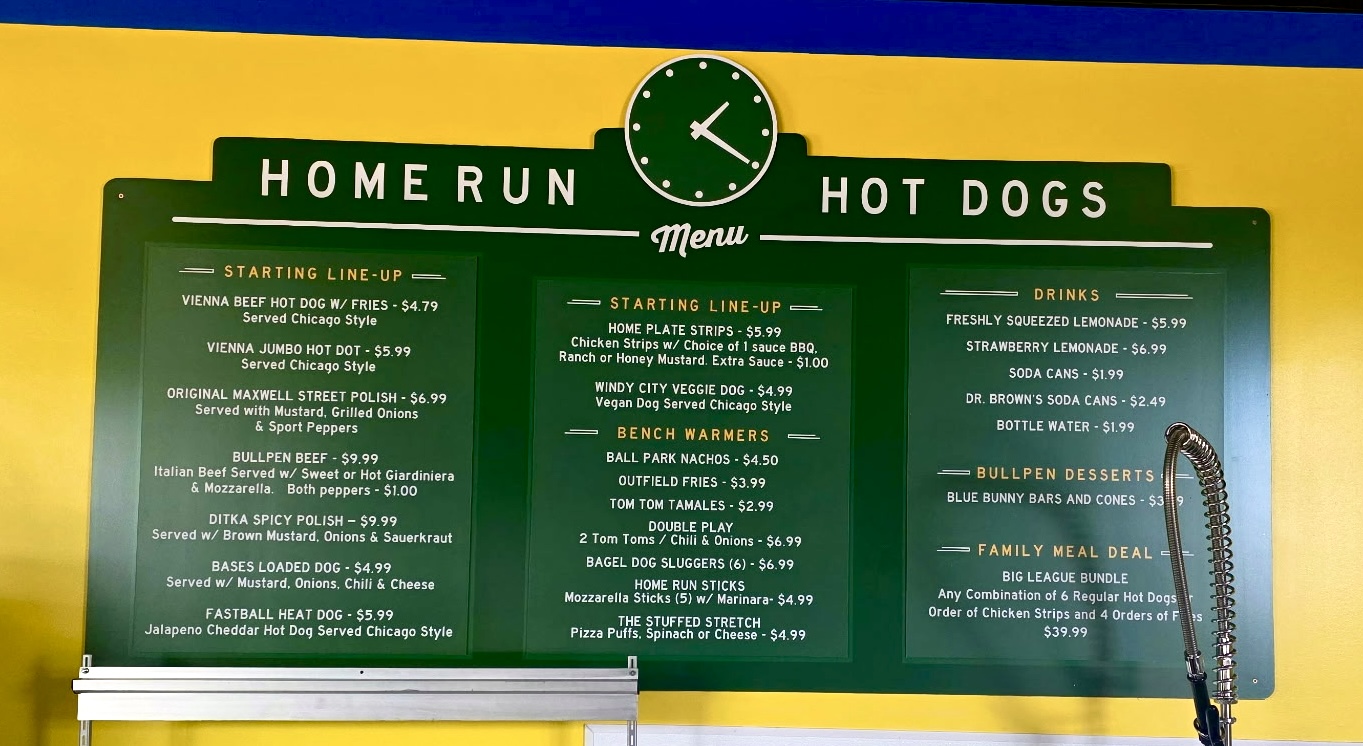 HOME RUN HOT DOGS
Menu
STARTING LINE-UP
VIENNA BEEF HOT DOG W/ FRIES - $4.79
Served Chicago Style
VIENNA JUMBO HOT DOT - $5.99
Served Chicago Style
ORIGINAL MAXWELL STREET POLISH - $6.99
Served with Mustard, Grilled Onions
& Sport Peppers
BULLPEN BEEF - $9.99
Italian Beef Served w/ Sweet or Hot Giardiniera
& Mozzarella. Both peppers - $1.00
DITKA SPICY POLISH – $9.99
Served w/ Brown Mustard, Onions & Sauerkraut
BASES LOADED DOG - $4.99
Served w/ Mustard, Onions, Chili & Cheese
FASTBALL HEAT DOG - $5.99
Jalapeno Cheddar Hot Dog Served Chicago Style
STARTING LINE-UP
HOME PLATE STRIPS - $5.99
Chicken Strips w/ Choice of 1 sauce BBQ,
Ranch or Honey Mustard. Extra Sauce - $1.00
WINDY CITY VEGGIE DOG - $4.99
Vegan Dog Served Chicago Style
BENCH WARMERS
BALL PARK NACHOS - $4.50
OUTFIELD FRIES - $3.99
TOM TOM TAMALES - $2.99
DOUBLE PLAY
2 Tom Toms / Chili & Onions - $6.99
BAGEL DOG SLUGGERS (6) - $6.99
HOME RUN STICKS
Mozzarella Sticks (5) w/ Marinara- $4.99
THE STUFFED STRETCH
Pizza Puffs, Spinach or Cheese - $4.99
DRINKS
FRESHLY SQUEEZED LEMONADE - $5.99
STRAWBERRY LEMONADE - $6.99
SODA CANS - $1.99
DR. BROWN'S SODA CANS - $2.49
BOTTLE WATER - $1.99
BULLPEN DESSERTS
BLUE BUNNY BARS AND CONES -
FAMILY MEAL DEAL
BIG LEAGUE BUNDLE
Any Combination of 6 Regular Hot Dogs
Order of Chicken Strips and 4 Orders of
$39.99